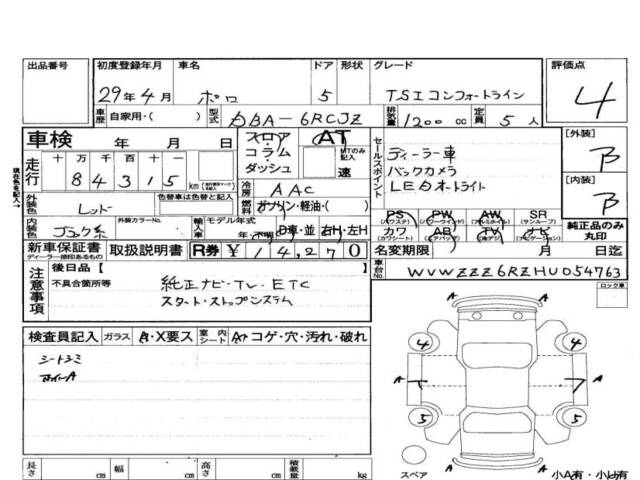 出品番号 初度登録年月 車名 ドア 形状 グレード 評価点
29年4月 ポロ 5 TSIコンフォートライン 4
車歴 自家用・( ) 型式 DBA-6RCJZ 排気量 1200 cc 定員 5 人
車検 年 月 日 フロア AT
コラム MTのみ記入
ダッシュ 速
セールスポイント
ディーラー車
バックカメラ
LEDオートライト
[外装] B
[内装] B
走行 十 万 千 百 十 一
84315 km
現在色を記入→
外装色 レッド 色替車は色替と記入
冷房 AAC
燃料 ガソリン・軽油・( )
内装色 ブラック系 外装カラーNo. 輸入車 モデル年式
年・不明 D車・並 右H・左H
PS (パワステ) PW (パワーウインド) AW (アルミホイル) SR (サンルーフ)
カワ (カワシート) AB (エアバック) TV ナビ (ナビゲーション)
純正品のみ丸印
新車保証書 取扱説明書 R券 ¥14,270
ディーラー捺印あるもの
名変期限 月 日迄
注意事項 後日品 [ ]
不具合箇所等 純正ナビ・TV・ETC
スタート・ストップシステム
車台No. WVWZZZ6RZHU054763
ロック車
検査員記入 ガラス A・X要ス 室内シート コゲ・穴・汚れ・破れ
シートシミ
A A
4 4
A A
5 5
A
スペア 小A有・小U有
長さ cm 幅 cm 高さ cm 積載量 kg